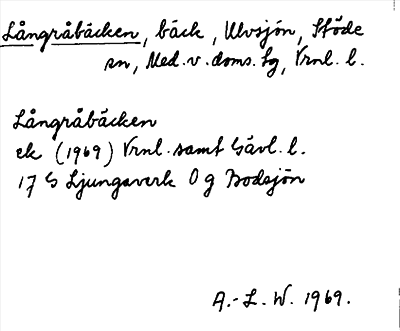 Långråbäcken, bäck, Ulvsjön, Stöde
sn, Med. v. doms. lg, Vrnl. l.
Långråbäcken
ek (1969) Vrnl. samt Gävl. l.
17 G Ljungaverk 0 g Bodsjön
A.-L. W. 1969.